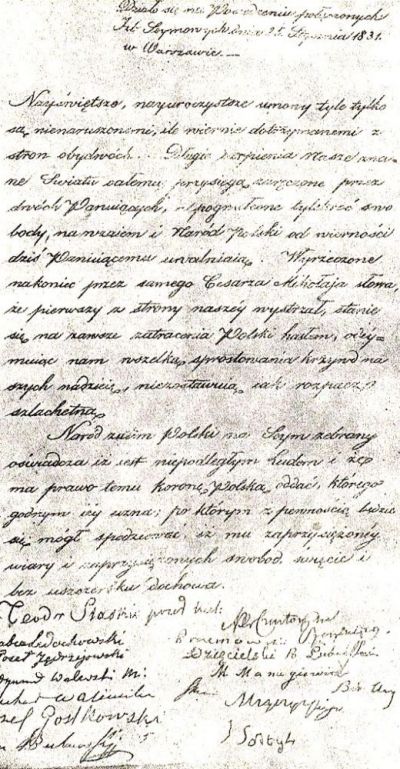 Działo się na Posiedzeniu połączonych
Izb Seymowych dnia 25 Stycznia 1831.
w Warszawie.
Nayświętsze, nayuroczystsze umowy tyle tylko
są nienaruszonemi, ile wiernie dotrzymanemi z
stron obydwóch. Długie cierpienia nasze zna-
ne Światu całemu, przysięgą zaręczone przez
dwóch Panuiących, a pogwałcone tylekroć swo
body, nawzaiem i Naród Polski od wierności
dziś Panuiącemu uwalniaią. Wyrzeczone
nakoniec przez samego Cesarza Mikołaja słowa,
że pierwszy z strony naszéy wystrzał, stanie
się na zawsze zatracenia Polski hasłem, odéy-
muiąc nam wszelką sprostowania krzywd na
szych nadzieię, niezostawuią iak rozpacz
szlachetną.
Naród zatém Polski na Seym zebrany
oświadcza iż iest niepodległym Ludem i że
ma prawo temu Koronę Polską oddać, którego
godnym iéy uzna; po którym z pewnością będzie
się mógł spodziewać, iż mu zaprzysiężonéy
wiary i zaprzysiężonych swobod, święcie i
bez uszczerbku dochowa.
Teodor
Ledochowski
Jędrzejowski
Walewski M.
Walichnowski
Gostkowski
Sołtyk